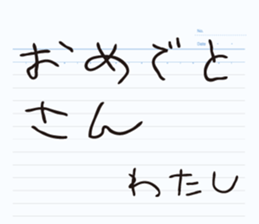 No.
Date
おめでと
さん
わたし